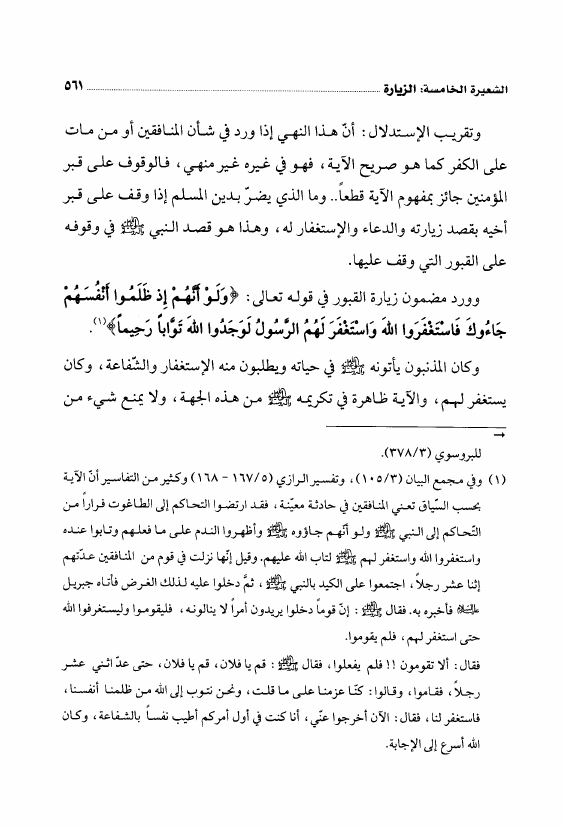 الشعيرة الخامسة: الزيارة ........ ٥٦١
وتقريب الإستدلال: أنّ هذا النهي إذا ورد في شأن المنافقين أو من مات
على الكفر كما هو صريح الآية، فهو في غيره غير منهي، فالوقوف على قبر
المؤمنين جائز بمفهوم الآية قطعاً.. وما الذي يضرّ بدين المسلم إذا وقف على قبر
أخيه بقصد زيارته والدعاء والإستغفار له، وهذا هو قصد النبي ﷺ في وقوفه
على القبور التي وقف عليها.
وورد مضمون زيارة القبور في قوله تعالى: ﴿وَلَوْ أَنَّهُمْ إِذ ظَلَمُوا أَنْفُسَهُمْ
جَاءُوكَ فَاسْتَغْفَرَوا اللهَ وَاسْتَغْفَرَ لَهُمُ الرَّسُولُ لَوَجَدُوا اللهَ تَوَّاباً رَحِيماً﴾(١).
وكان المذنبون يأتونه ﷺ في حياته ويطلبون منه الإستغفار والشّفاعة، وكان
يستغفر لهم، والآية ظاهرة في تكريمه ﷺ من هذه الجهة، ولا يمنع شيء من
→
للبروسوي (٣/ ٣٧٨).
(١) وفي مجمع البيان (٣/ ١٠٥)، وتفسير الرازي (٥/ ١٦٧ - ١٦٨) وكثير من التفاسير أنّ الآية
بحسب السّياق تعني المنافقين في حادثة معيّنة، فقد ارتضوا التحاكم إلى الطاغوت فراراً من
التّحاكم إلى النبي ﷺ ولو أنّهم جاؤوه ﷺ وأظهروا الندم على ما فعلهم وتابوا عنده
واستغفروا الله واستغفر لهم ﷺ لتاب الله عليهم. وقيل إنّها نزلت في قوم من المنافقين عدّتهم
إثنا عشر رجلاً، اجتمعوا على الكيد بالنبي ﷺ، ثمّ دخلوا عليه لذلك الغرض فأتاه جبريل
عليه السلام فأخبره به. فقال ﷺ: إنّ قوماً دخلوا يريدون أمراً لا ينالونه، فليقوموا وليستغرفوا الله
حتى استغفر لهم، فلم يقوموا.
فقال: ألا تقومون !! فلم يفعلوا، فقال ﷺ: قم يا فلان، قم يا فلان، حتى عدّ اثني عشر
رجلاً، فقاموا، وقالوا: كنّا عزمنا على ما قلت، ونحن نتوب إلى الله من ظلمنا أنفسنا،
فاستغفر لنا، فقال: الآن أخرجوا عنّي، أنا كنت في أول أمركم أطيب نفساً بالشفاعة، وكان
الله أسرع إلى الإجابة.